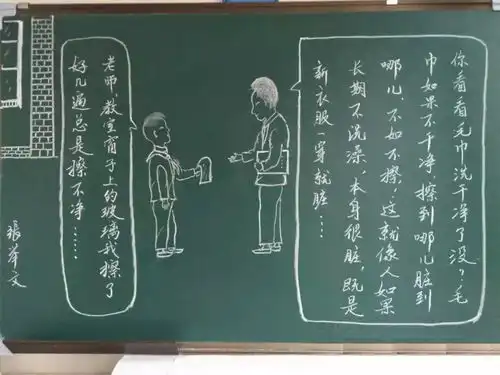 老师，教室窗子上的玻璃我擦了
好几遍总是擦不净……
你看看毛巾洗干净了没？毛
巾如果不干净，擦到哪儿脏到
哪儿，不如不擦，这就像人如果
长期不洗澡，本身很脏，既是
新衣服一穿就脏…